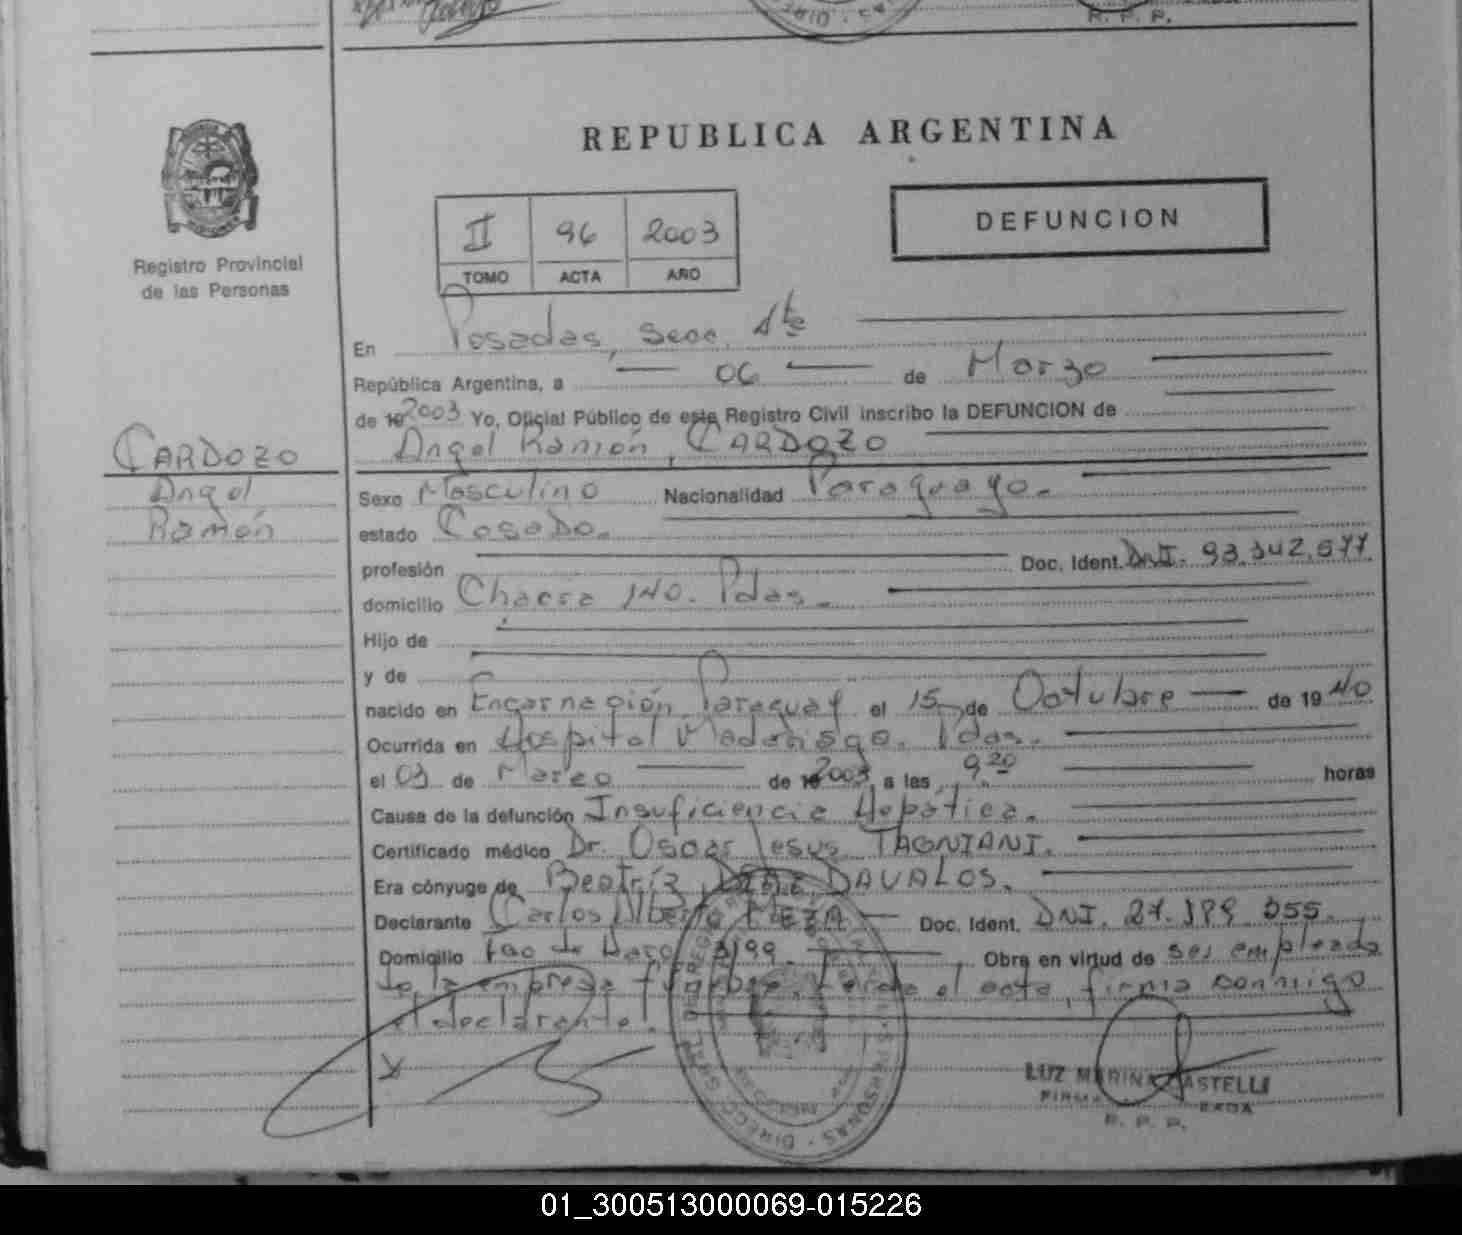 REPUBLICA ARGENTINA
DEFUNCION
II 96 2003
TOMO ACTA AÑO
Registro Provincial
de las Personas
En Posadas, Secc. 1ta
República Argentina, a 06 de Marzo
de 19 2003 Yo, Oficial Público de este Registro Civil inscribo la DEFUNCION de
Angel Ramón, CARDOZO
CARDOZO
Angel
Ramón
Sexo Masculino Nacionalidad Paraguayo.
estado Casado.
profesión Doc. Ident. DNI. 93.342.577
domicilio Chacra 140. Pdas.
Hijo de
y de
nacido en Encarnación Paraguay el 15 de Octubre de 1940
Ocurrida en Hospital Madariaga. Pdas.
el 03 de Marzo de 19 2003 a las 9.20 horas
Causa de la defunción Insuficiencia Hepática.
Certificado médico Dr. Oscar Jesus TAGNIANI.
Era cónyuge de Beatriz DAVALOS.
Declarante Carlos Alberto MEZA Doc. Ident. DNI. 27.199.055.
Domicilio Fco de Haro 3199. Obra en virtud de ser empleado
de la empresa funebre. Leida el acta, firma conmigo
el declarante.
LUZ MARINA CASTELLI
R. P. P.
01_300513000069-015226